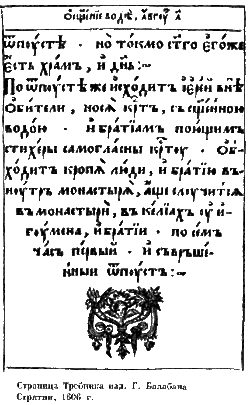 Ѡщ҃нїе водѣ, а҆́вгоу а҃
Ѿпоустѣ · но̀ то́кмо ст҃го є҆го́же
є҆́сть хра́мъ, и҆ д҃нь:~
По ѿпоустѣ же исхо́дитъ і҆ере́и внѣ
ѻ҆би́тели, нося̀ кр҃тъ, съ сщ҃е́нною
водо́ю · и҆ бра́тїамъ пою́щимъ
стихе́ры самогла́сны кр҃тоу · ѻ҆б-
хо́дитъ кропя̀ люди, и҆ бра́тїю въ-
ноу́трь монастыря̀, а҆́ще слоучи́тъся
въ монастырѝ, в ке́лїахъ и҆ и҆-
гоу́мена, и҆ бра́тїи · по се́мъ
ча́съ пе́рвый · и҆ съврьше́-
нный ѿпоу́стъ:~
Страница Требника изд. Г. Балабана
Стрятин, 1606 г.